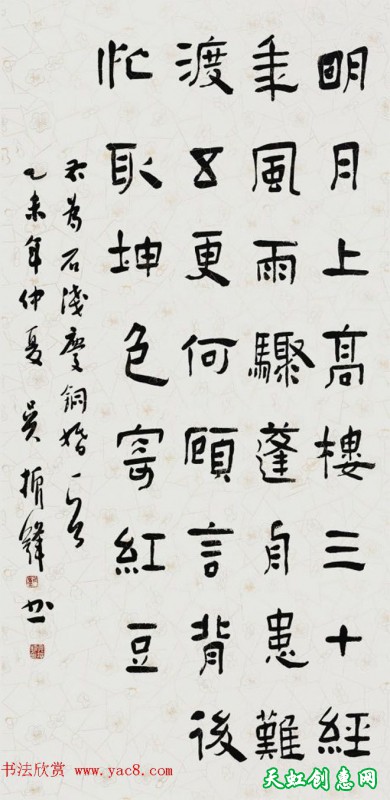 明月上高樓三十經
年風雨驟蓬舟患難
渡五更何顧言背後
忙取坤色寄紅豆
右為石淺慶銅婚一首
乙未年仲夏 吳振鋒
书法欣赏 www.yac8.com
天虹创惠网